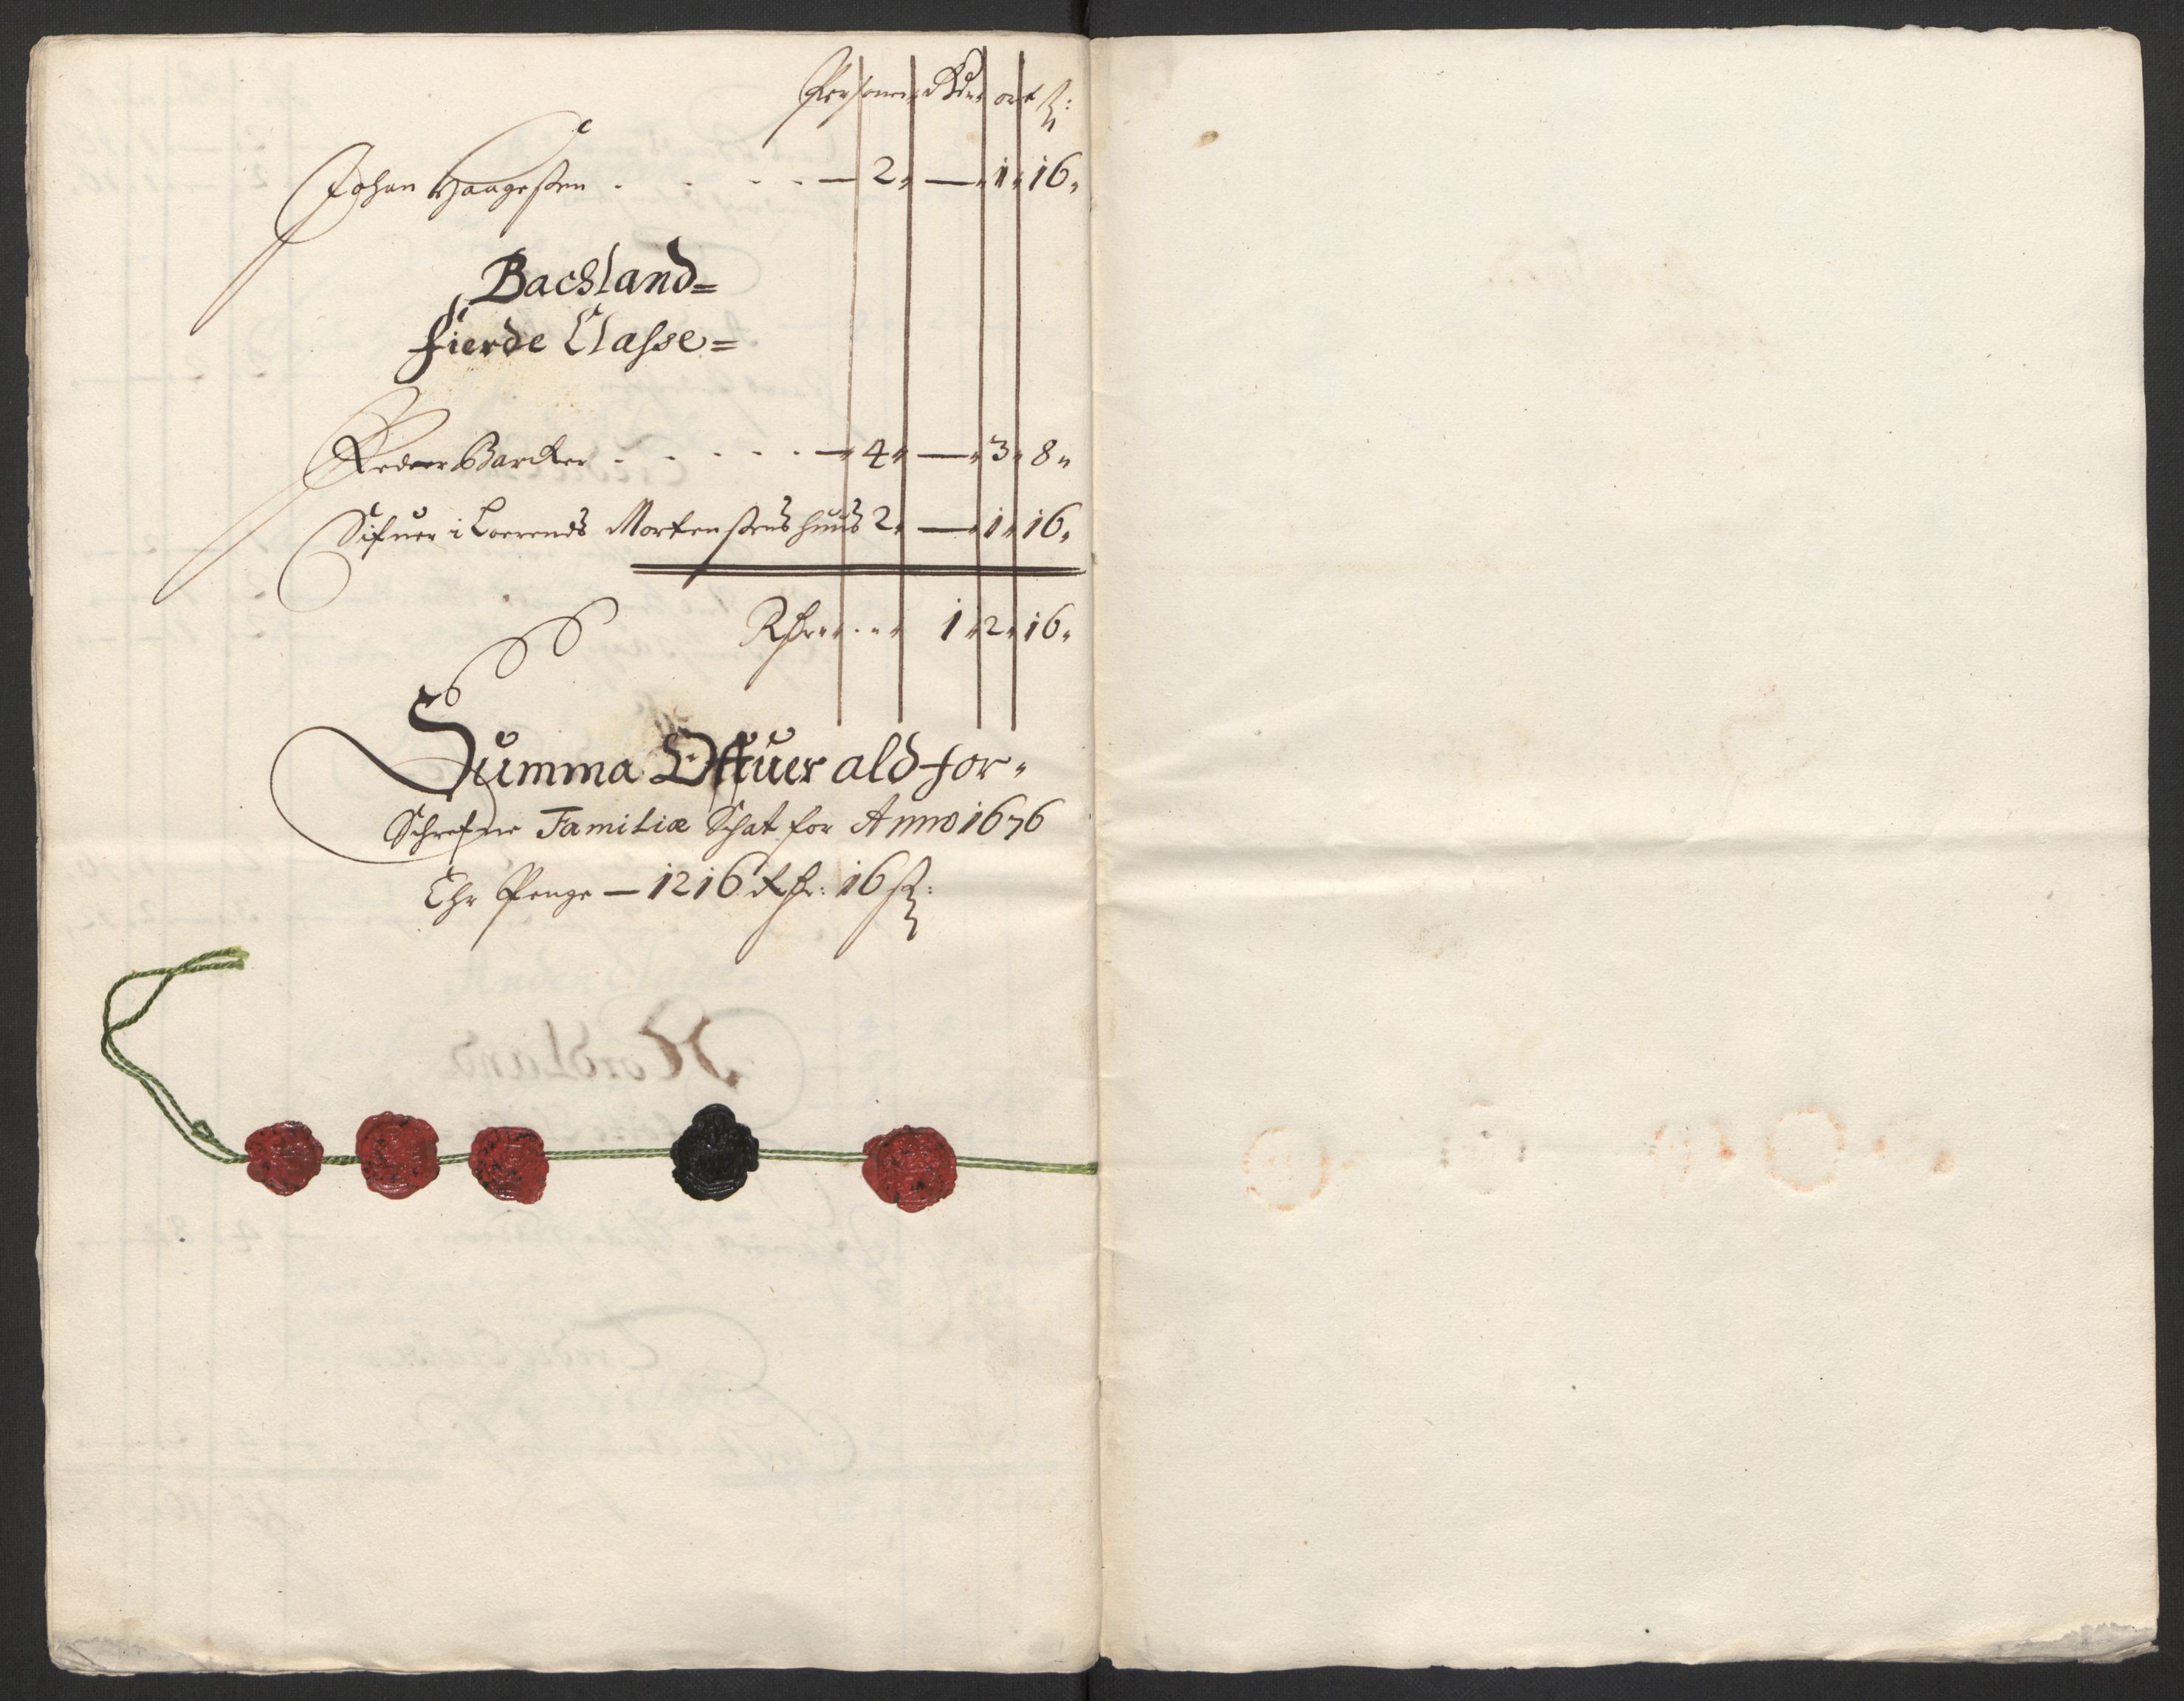 Personer Rdr ort ß:
Johan Haagensen . . . . — 2, — 1, 16,
Bachland=
fierde Classe=
Peder Barcker . . . . . — 4, — 3, 8,
Sifuer i Loerends Mortensens huus 2, — 1, 16,
Rdr . . . 1, 2, 16,
Summa Offuer ald for=
Schrefne Familiæ Schat for Anno 1676
Ehr Penge — 1216 Rdr: 16 ß: